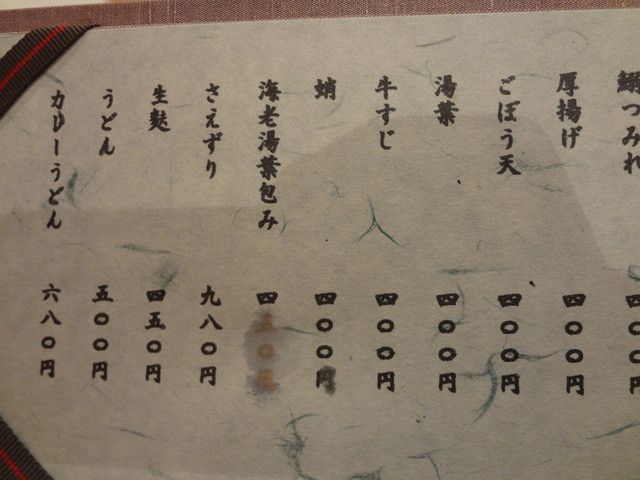 つみれ
厚揚げ 四〇〇円
ごぼう天 四〇〇円
湯葉 四〇〇円
牛すじ 四〇〇円
蛸 四〇〇円
海老湯葉包み 四五〇円
さえずり 九八〇円
生麩 四五〇円
うどん 五〇〇円
カレーうどん 六八〇円